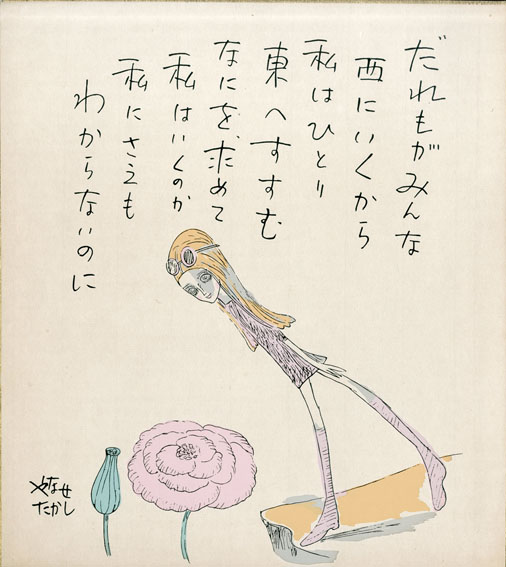 だれもがみんな
西にいくから
私はひとり
東へすすむ
なにを、求めて
私はいくのか
私にさえも
わからないのに
やなせ
たかし